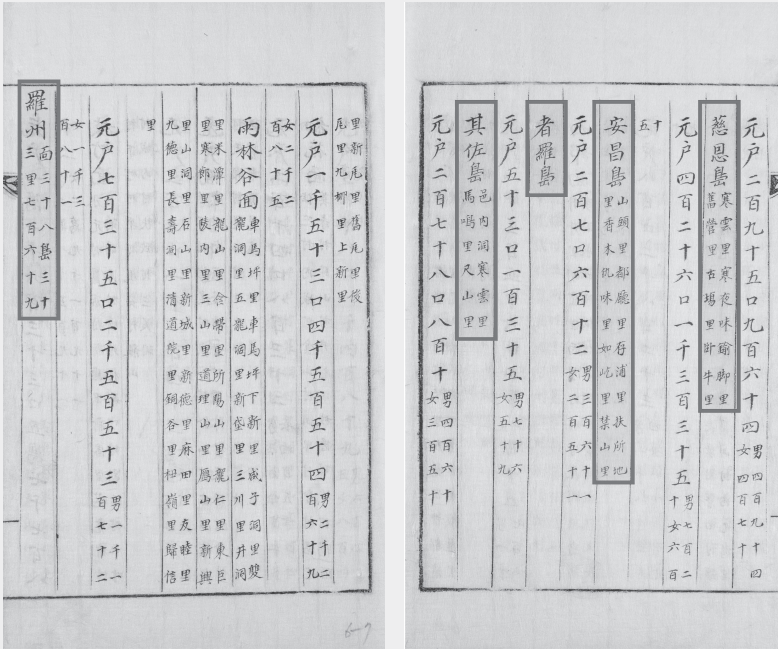 元戶二百九十五口九百六十四 男四百九十四
女四百七十
慈恩島 寒雲里寒夜味踰脚里
舊營里古場里卧牛里
元戶四百二十六口一千三百三十五 男七百二
十女六百
十
五
安昌島 山頭里都廳里存浦里扶所地
里香木机味里如屹里禁山里
元戶二百七口六百十二 男三百六十一
女二百五十一
者羅島
元戶五十三口一百三十五 男七十六
女五十九
其佐島 邑内洞寒雲里
馬鳴里尺山里
元戶二百七十八口八百十 男四百六十
女三百五十
里新里舊里後
里九柳里上新里
元戶一千五十三口四千五百五十四 男二千二
百六十九
女二千二
百八十五
兩林谷面 車馬坪里車馬坪下新里咸子洞里雙
龍洞里五龍洞里新垈里三川里丹洞
里米里龍山里金里所陽山里龍仁里東巨
里寒郎里陵内里三山里道理山里鳳山里新興
里山洞里石山里新城里新德里麻田里友睦里
九德里長壽洞里清道院里銅谷里杻嶺里歸信
里
元戶七百三十五口二千五百五十三 男一千一
百七十二
女一千三
百八十一
羅州 面三十八島三十
三里七百六十九